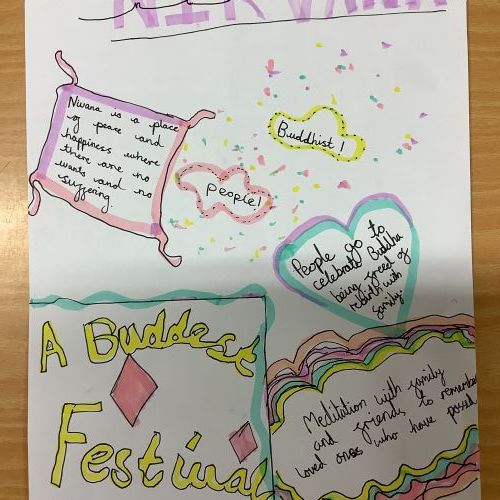 NIRVANA
Nivana is a place
of peace and
happiness where
there are no
wants and no
suffering.
Buddhist!
people!
People go to
celebrate Buddha
being freed of
rebirth with
family.
A Buddest
Festival
Meditation with family
and friends to remember
loved ones who have passed